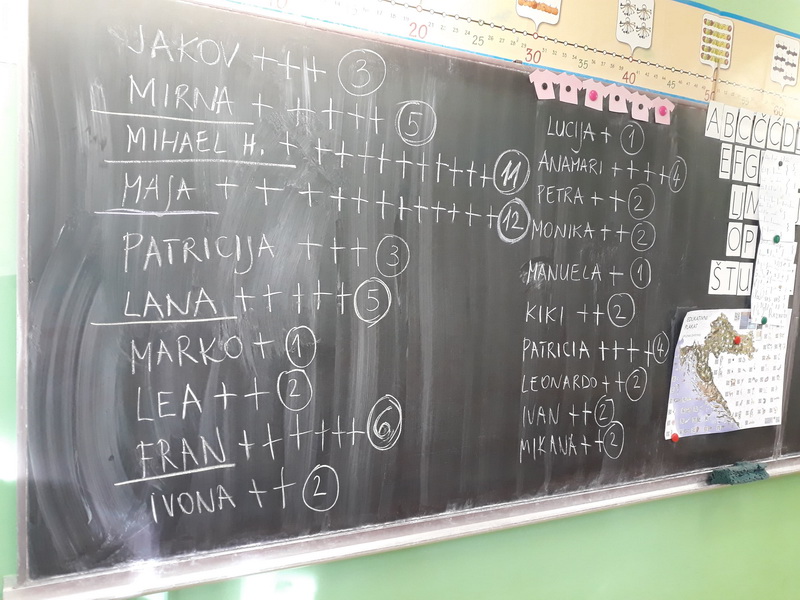 JAKOV +++ 3
MIRNA +++++ 5
MIHAEL H. +++++++++++ 11
MAŠA ++++++++++++ 12
PATRICIJA +++ 3
LANA +++++ 5
MARKO + 1
LEA ++ 2
FRAN ++++++ 6
IVONA ++ 2
LUCIJA + 1
ANAMARI ++++ 4
PETRA ++ 2
MONIKA ++ 2
MANUELA + 1
KIKI ++ 2
PATRICIA ++++ 4
LEONARDO ++ 2
IVAN ++ 2
MIKANA ++ 2
20 25 30 35 40 45 50
A B C Č Ć D
E F G
O P
Š T U